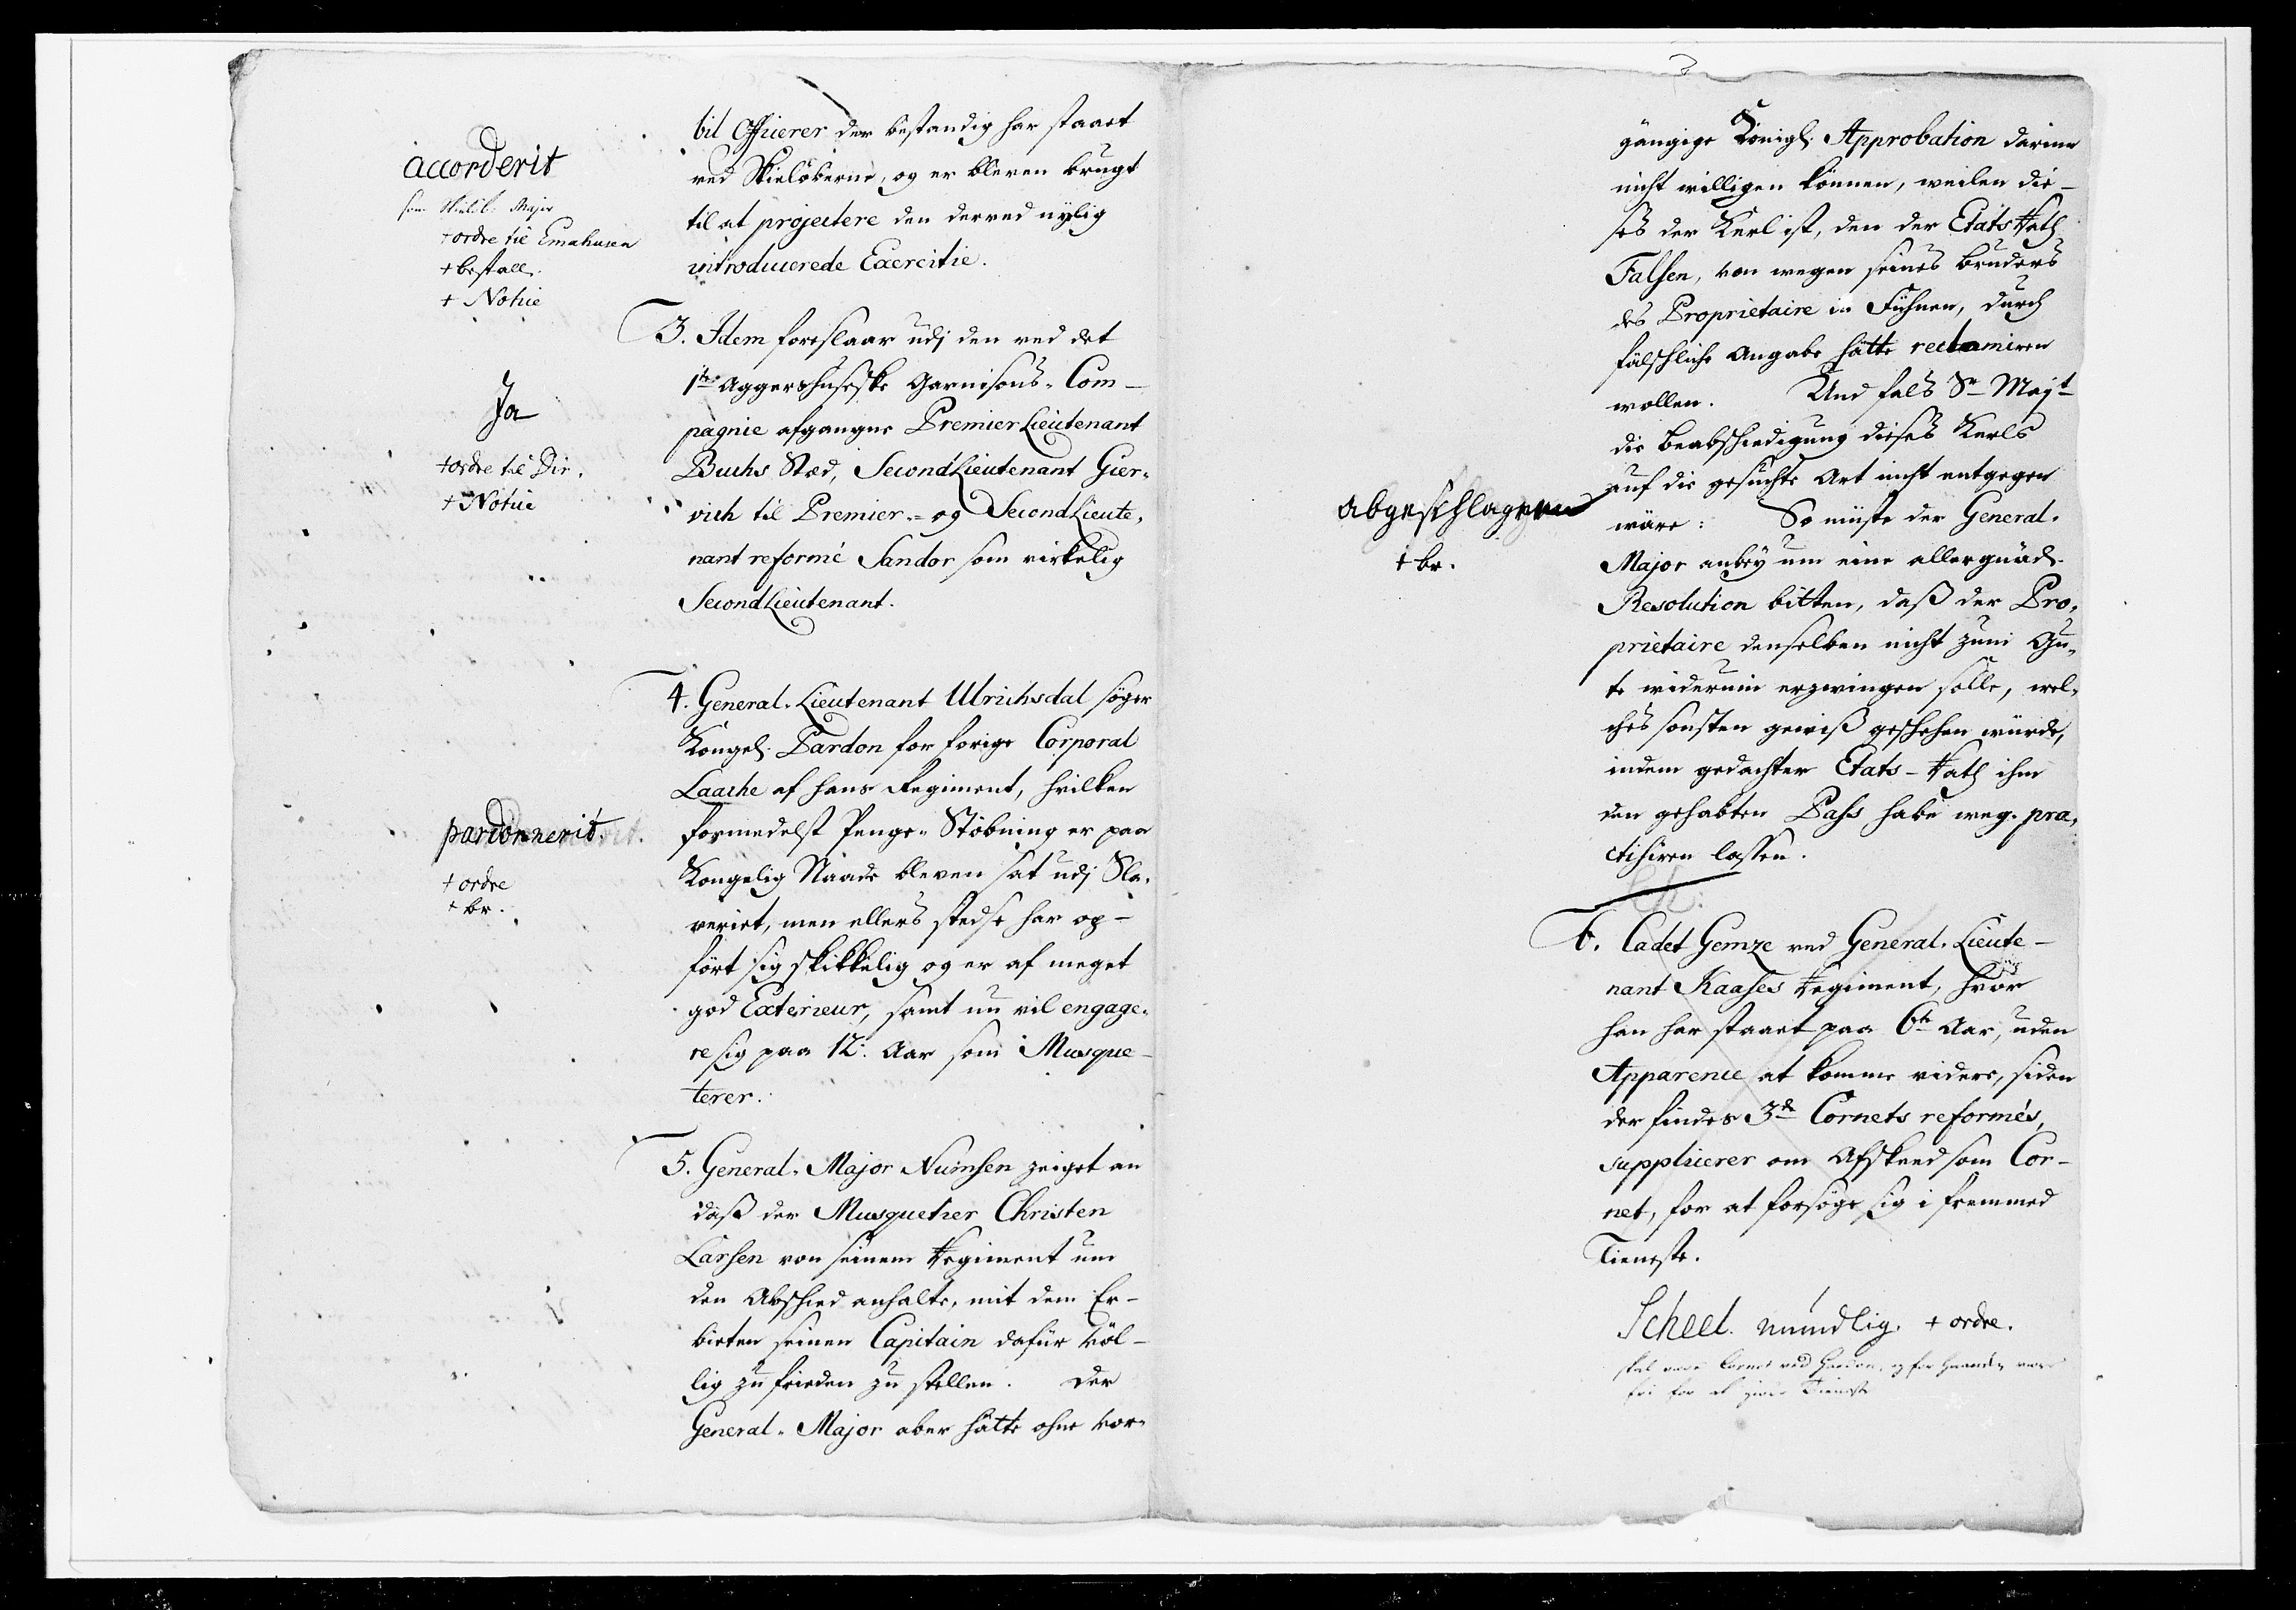 accorderit
som Skielöb: Major
+ordre til Emahusen
+bestall.
+ Notice
bil Officerer der bestandig har staaet
ved Skielöberne, og er bleven brugt
til at projectere den derved nylig
introducerede Exercitie.
3. Idem foreslaar udj den ved det
1ste Aggershusiske Garnisons-Com-
pagnie afgangne Premier Lieutenant
Buchs Stæd, Second Lieutenant Gier-
vich til Premier- og Second Lieute-
nant reformé Sandor som virkelig
Second Lieutenant.
Ja
+ordre til Dir.
+ Notice
4. General-Lieutenant Ulrichsdal söger
Kongel. Pardon for forige Corporal
Laache af hans Regiment, hvilken
formedelst Penge-Stöbning er paa
Kongelig Naade bleven sat udj Sla-
veriet, men ellers stedse har op-
fört sig skikkelig og er af meget
god Exterieur, samt nu vil engage-
re sig paa 12. Aar som Musque-
terer.
pardonnerit.
+ ordre
+ br.
5. General-Major Numsen zeiget an
daß der Musquetier Christen
Larsen von seinem Regiment um
den Abschied anhalte, mit dem Er-
bieten seinen Capitain dafür völ-
lig zu frieden zu stellen. Der
General-Major aber hätte ohne vor-
gängige Königl. Approbation darinn
nicht willigen können, weilen die-
ses der Kerl ist, den der Etats Rath
Falsen, von wegen seines Bruders
des Proprietaire in Fühnen, durch
fälschliche Angabe hätte reclamiren
wollen. Und fals Sr Mayt
die Beabschiedigung dieses Kerls
auf die gesuchte Art nicht entgegen
wäre: So müste der General-
Major anbey um eine allergnäd.
Resolution bitten, daß der Pro-
prietaire denselben nicht zum Gu-
te widerum erzwingen solle, wel-
ches sonsten gewiß geschehen würde,
indem gedachter Etats-Rath ihm
den gehabten Pass habe weg-pra-
ctisiren lassen.
abgeschlagen
+ br.
6. Cadet Gemze ved General-Lieute-
nant Kaases Regiment, hvor
han har staaet paa 6te Aar, uden
Apparence at komme videre, siden
der findes 3de Cornets reformés,
supplicerer om Afskeed som Cor-
net, for at forsöge sig i fremmed
Tieneste.
Scheel. mündlig. + ordre.
skal være Cornet ved Garden, og for være
fri for at giöre Tieneste